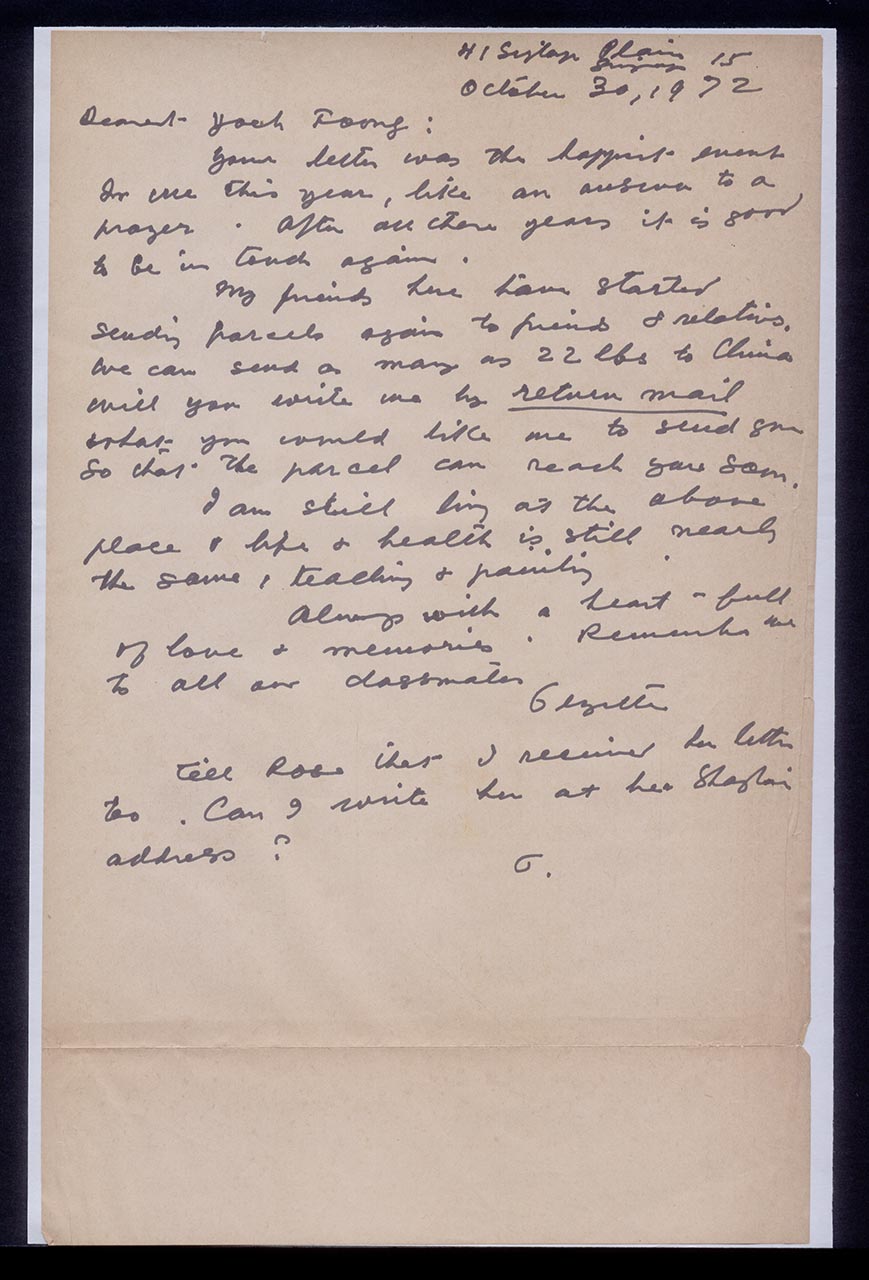 H1 Siglap Plain
Singapore 15
October 30, 1972
Dearest Yoch Foong:
Your letter was the happiest event
for me this year, like an answer to a
prayer. After all these years it is good
to be in touch again.
My friends here have started
sending parcels again to friends & relatives.
We can send as many as 22 lbs to China
will you write me by return mail
what you would like me to send you
so that the parcel can reach you soon.
I am still living at the above
place & life & health is still nearly
the same, teaching & painting
Always with a heart-full
of love & memories. Remember me
to all our classmates
Georgette
Tell Rose that I received her letter
too. Can I write her at her
address?
G.